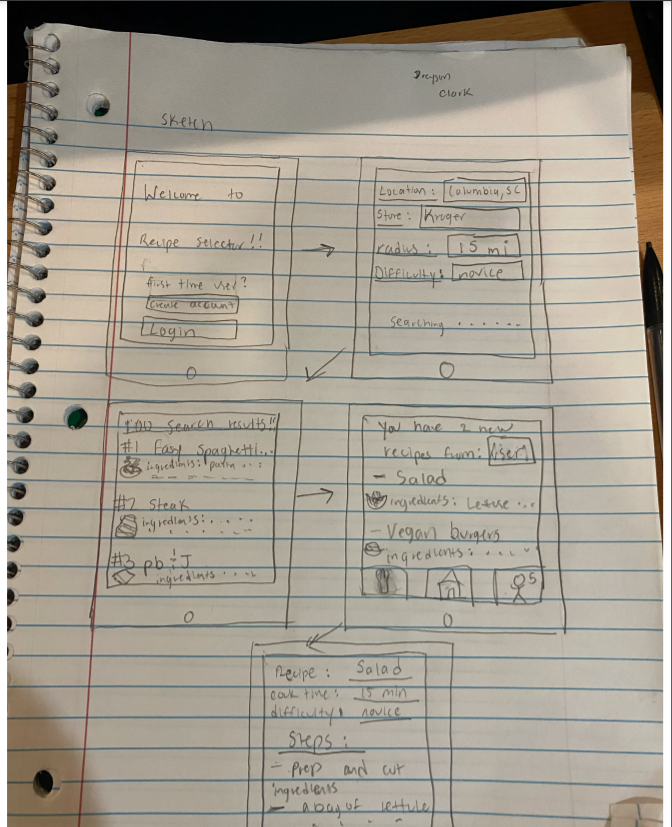 Clark
Sketch
Welcome to
Recipe selector!!
first time user?
Create account
Login
Location: Columbia, SC
Store: Kroger
radius: 15 mi
Difficulty: novice
Searching ......
100 Search results!!
#1 Easy Spaghetti...
ingredients: pasta ...
#2 Steak
ingredients: ....
#3 pb & J
ingredients ....
You have 2 new
recipes from: User1
- Salad
ingredients: Lettuce ...
- Vegan burgers
ingredients: ....
5
Recipe: Salad
cook time: 15 min
difficulty: novice
Steps:
- Prep and cut
ingredients
- a bag of lettuce